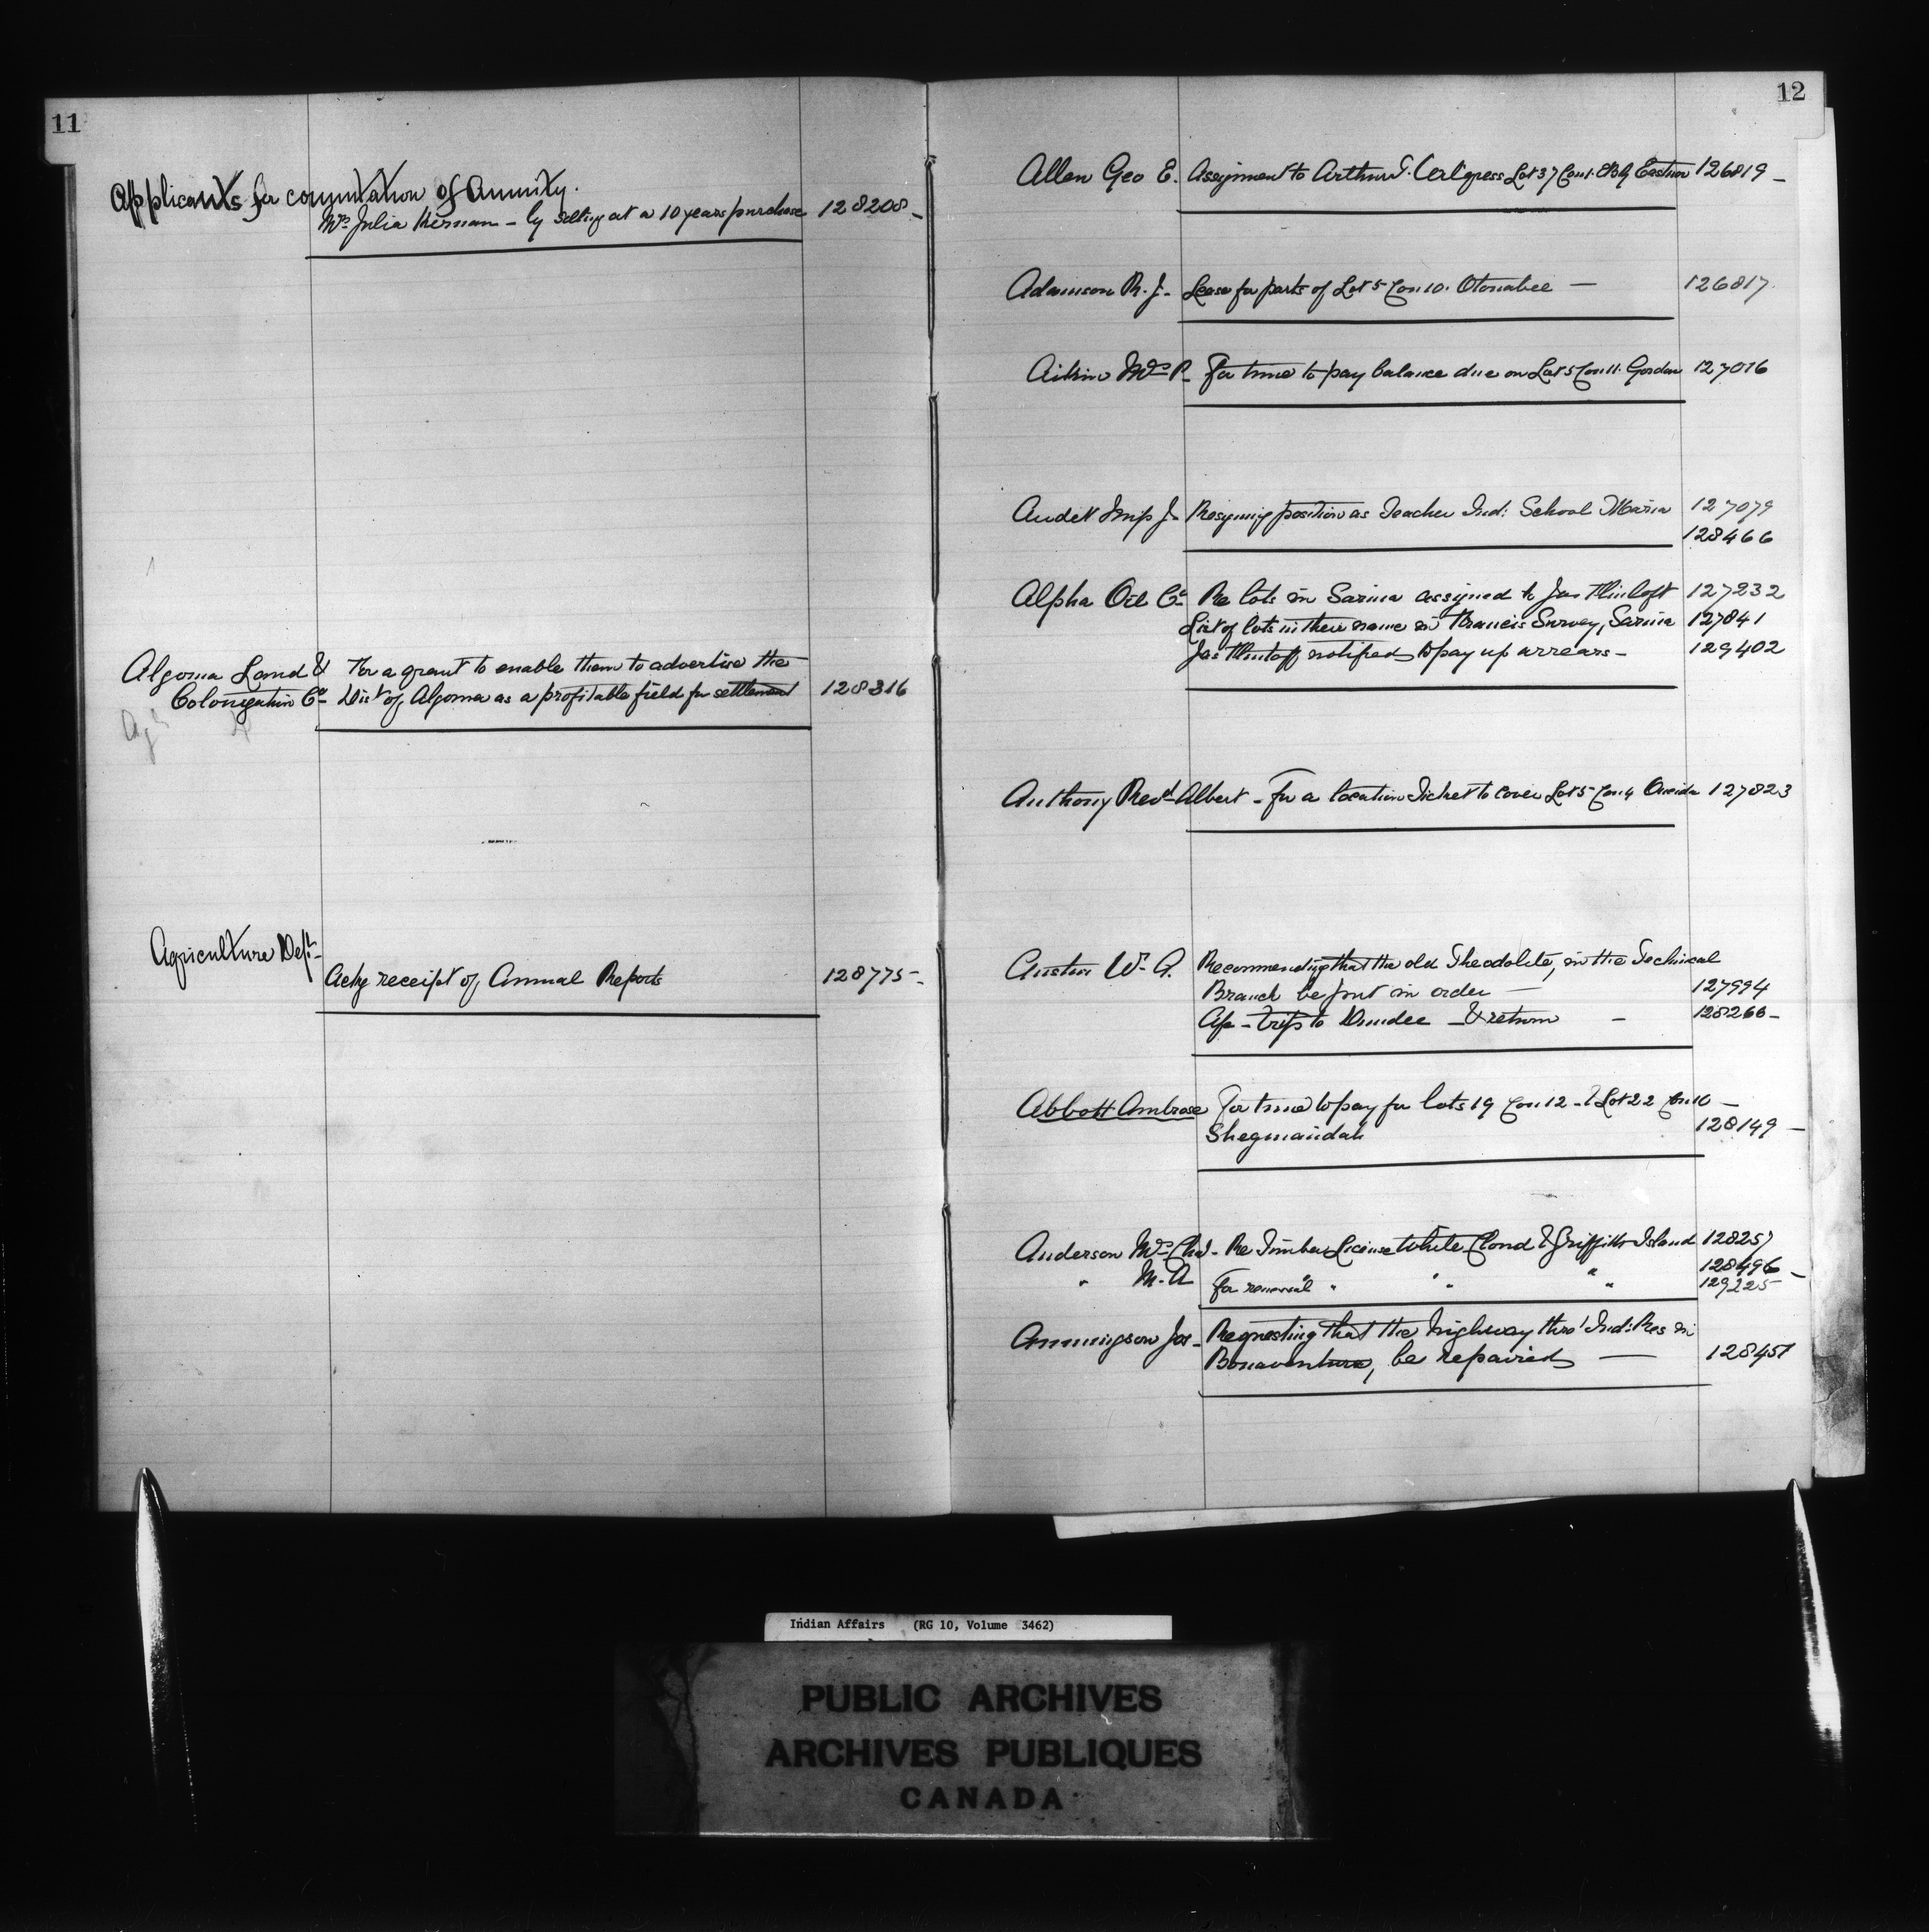 11
Applicants for commutation of Annuity.
Mrs Julia Kernan - by selling at a 10 years purchase 128208 -
Algoma Land & For a grant to enable them to advertise the
Colonization Co Dist of Algoma as a profitable field for settlement 128316
Agriculture Dept -
Ackg receipt of Annual Reports 128775 -
12
Allen Geo E. Assignment to Arthur Lot 37 Con 1. EBR Eastnor 126819 -
Adamson R. J. - Lease for parts of Lot 5 Con 10. Otonabee — 126817
Mrs P - For time to pay balance due on Lot 5 Con 11. Gordon 127016
Audet Miss J - Resigning position as Teacher Ind: School Maria 127079
128466
Alpha Oil Co Re lots in Sarnia assigned to Jas 127232
List of lots in their name in Survey, Sarnia 127841
Jas notified to pay up arrears - 129402
Anthony Revd Albert - For a location Ticket to cover Lot 5 Con 4 Oneida 127823
Austin W. A. Recommending that the old Theodolite, in the Technical
Branch be put in order — 127994
a/c - trip to Dundee - & return - 128266 -
Abbott Ambrose For time to pay for lots 19 Con 12 - & Lot 22 Con 10 —
Sheguiandah 128149 —
Anderson Mrs Chas - Re Timber License White Cloud & Griffith Island 128257
" M. A 128496 -
For renewal " " " " 129225
Jos - Requesting that the highway thro' Ind: Res in
Bonaventure, be repaired — 128451
Indian Affairs (RG 10, Volume 3462)
PUBLIC ARCHIVES
ARCHIVES PUBLIQUES
CANADA